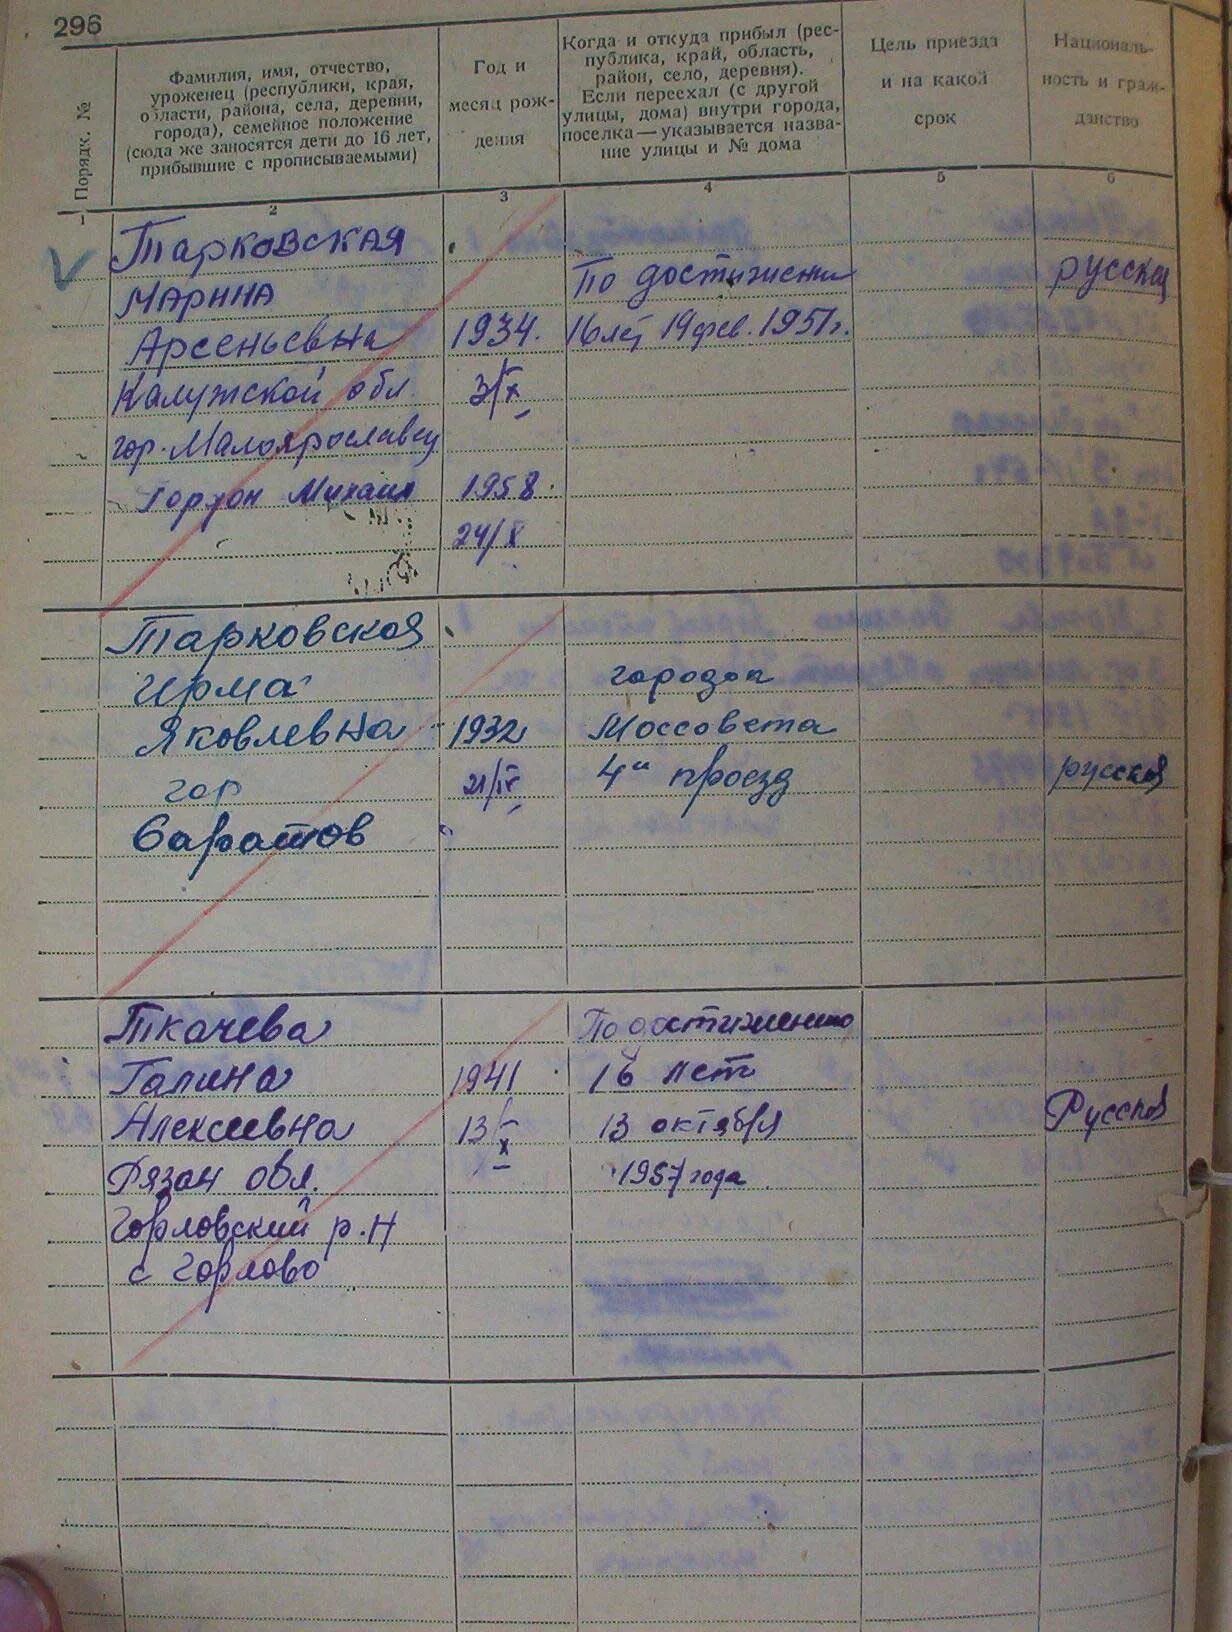 296
Порядк. №
Фамилия, имя, отчество,
уроженец (республики, края,
области, района, села, деревни,
города), семейное положение
(сюда же заносятся дети до 16 лет,
прибывшие с прописываемыми)
Год и
месяц рож-
дения
Когда и откуда прибыл (рес-
публика, край, область,
район, село, деревня).
Если переехал (с другой
улицы, дома) внутри города,
поселка — указывается назва-
ние улицы и № дома
Цель приезда
и на какой
срок
Националь-
ность и граж-
данство
1 2 3 4 5 6
Тарковская
Марина
Арсеньевна
Калужской обл.
гор. Малоярославец
Гордон Михаил
1934.
3/X
1958.
24/X
По достижении
16 лет 19 фев. 1951г.
русская
Тарковская
Ирма
Яковлевна
гор
Саратов
1932
21/IV
городок
Моссовета
4й проезд
русская
Ткачева
Галина
Алексеевна
Рязан обл.
Горловский р.н
с Горлово
1941
13/X
По достижению
16 лет
13 октября
1957 года
Русская